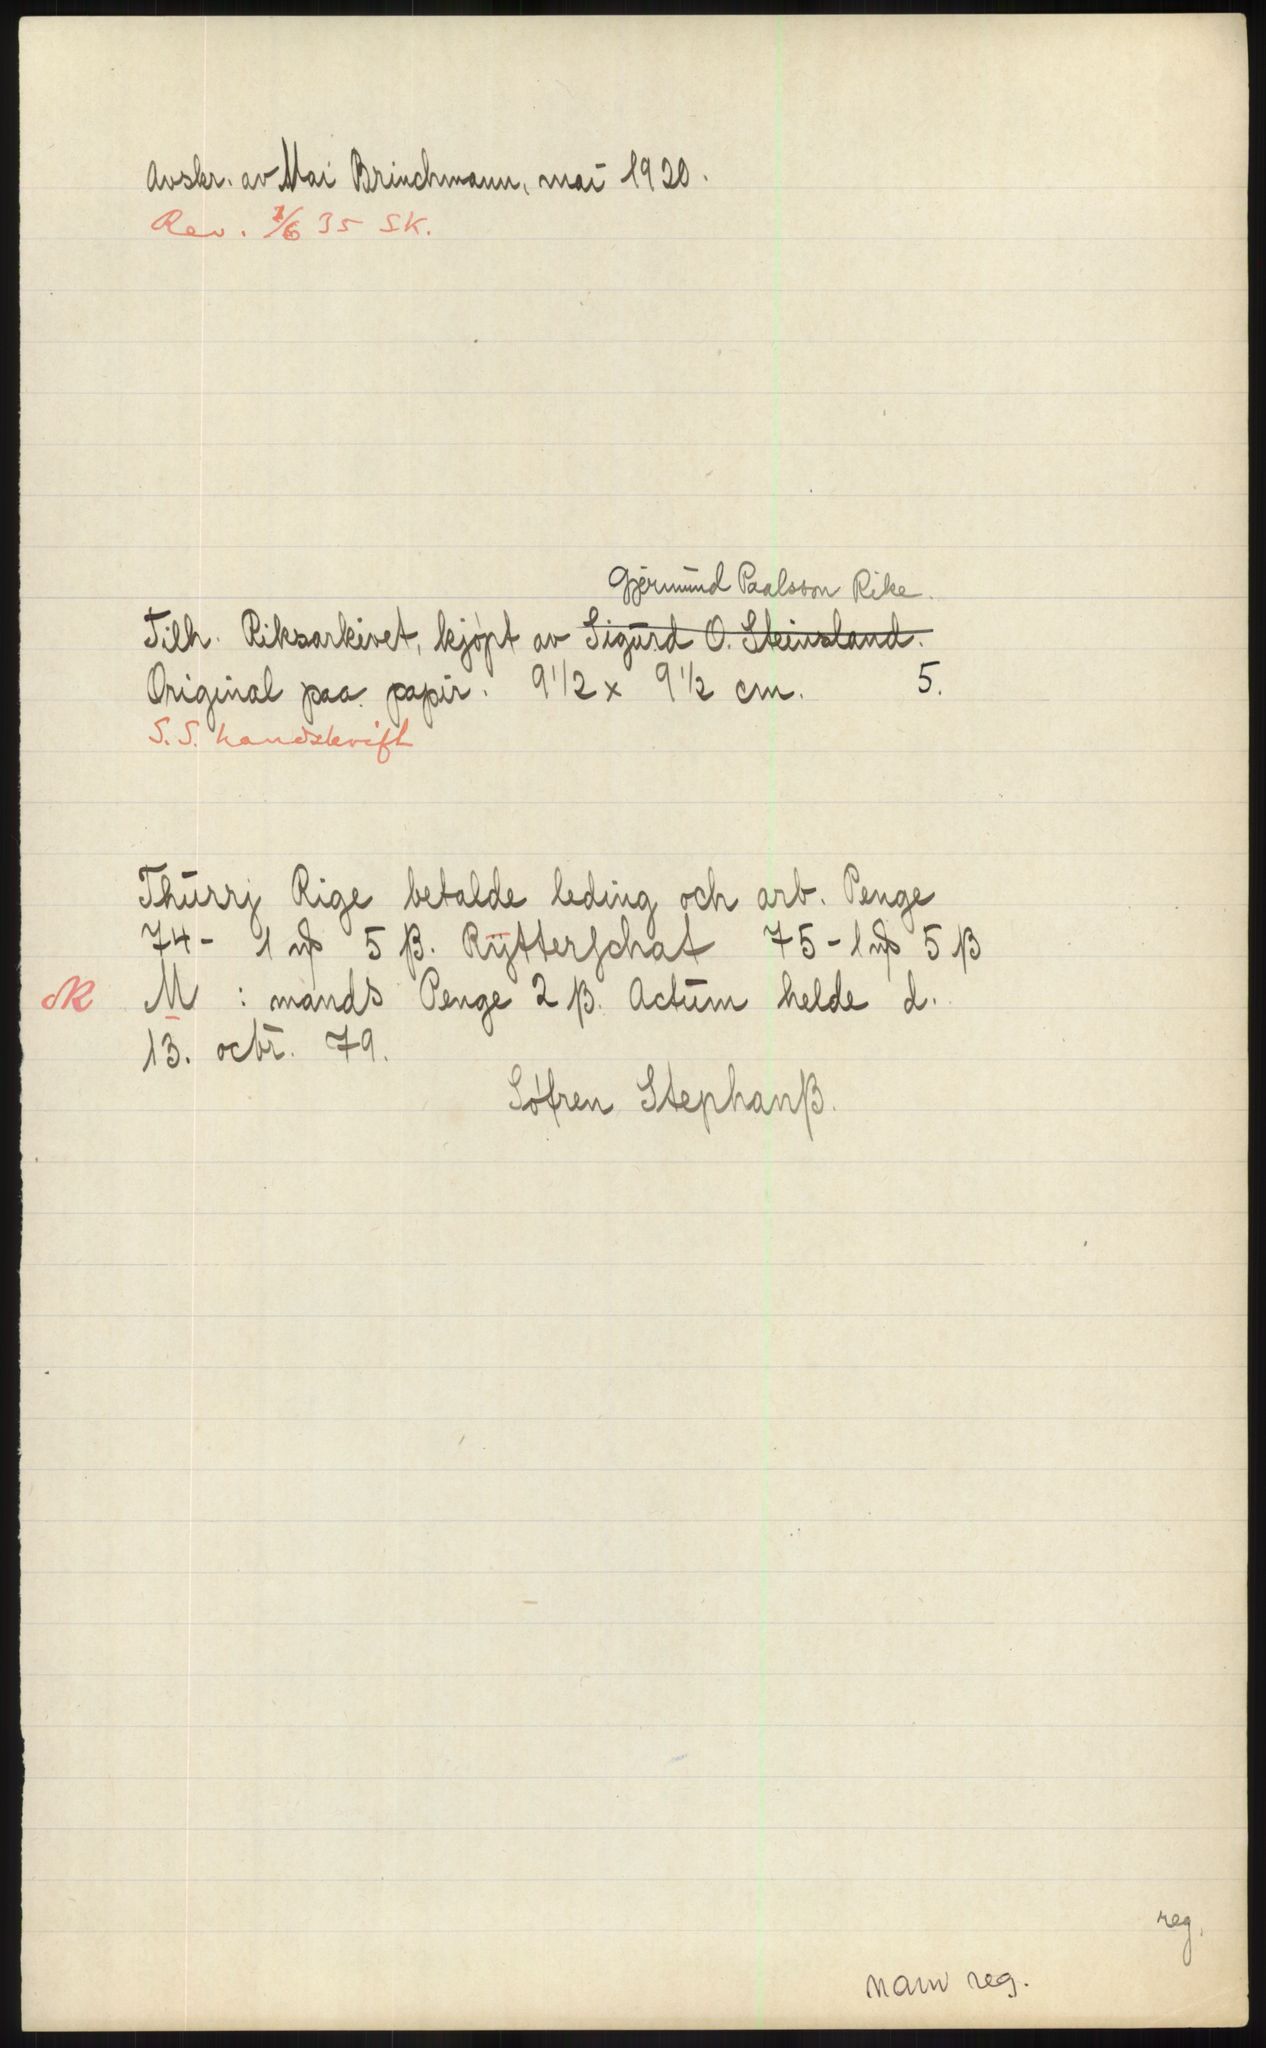 Avskr. av Mai Brinchmann, mai 1920.
Rev. 1/6 35 SK.
Gjermund Paalsson Rike.
Tilh. Riksarkivet, kjøpt av Sigurd O. Steinsland.
Original paa papir. 9 1/2 x 9 1/2 cm. 5.
S.S. handskrift
Thurrj Rige betalde leding och arb. Penge
74- 1 5 β. Rÿtterschat 75-1 5 β
M : mands Penge 2 β. Actum helde d.
13. octr. 79.
Søfren Stephanβ.
reg.
navn reg.